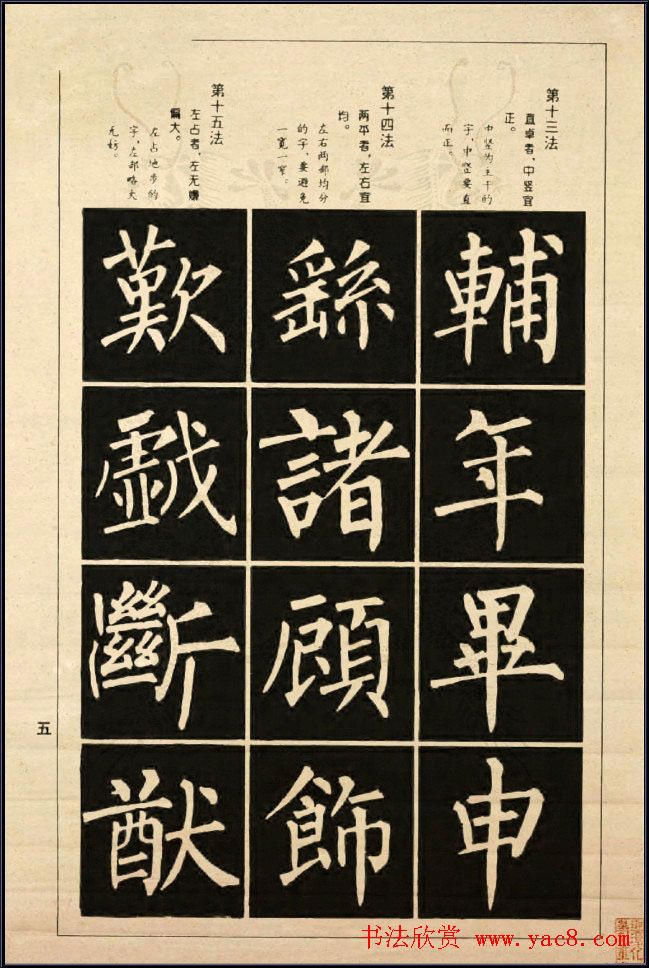 第十三法
直卓者，中竖宜
正。
中竖为主干的
字，中竖要直
而正。
輔
年
畢
申
第十四法
两平者，左右宜
均。
左右两部均分
的字，要避免
一宽一窄。
繇
諸
顧
飾
第十五法
左占者，左无嫌
偏大。
左占地步的
字，左部略大
无妨。
歎
戯
斷
猷
五
书法欣赏 www.yac8.com